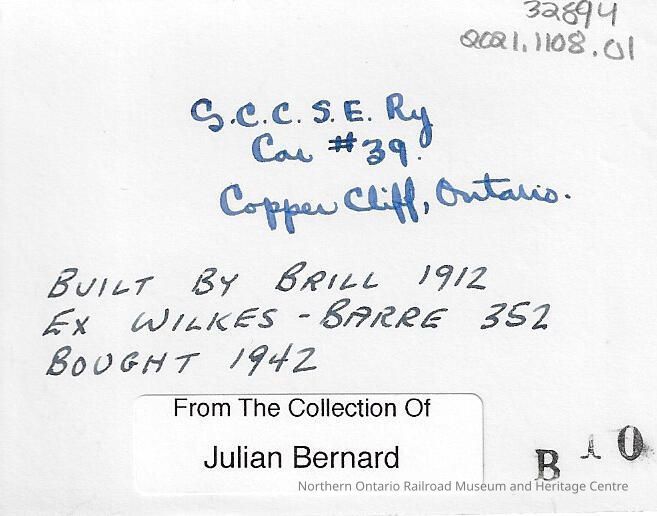 32894
2021.1108.01
S.C.C. S.E. Ry
Car #39.
Copper Cliff, Ontario.
BUILT BY BRILL 1912
EX WILKES-BARRE 352
BOUGHT 1942
From The Collection Of
Julian Bernard
B 10
Northern Ontario Railroad Museum and Heritage Centre